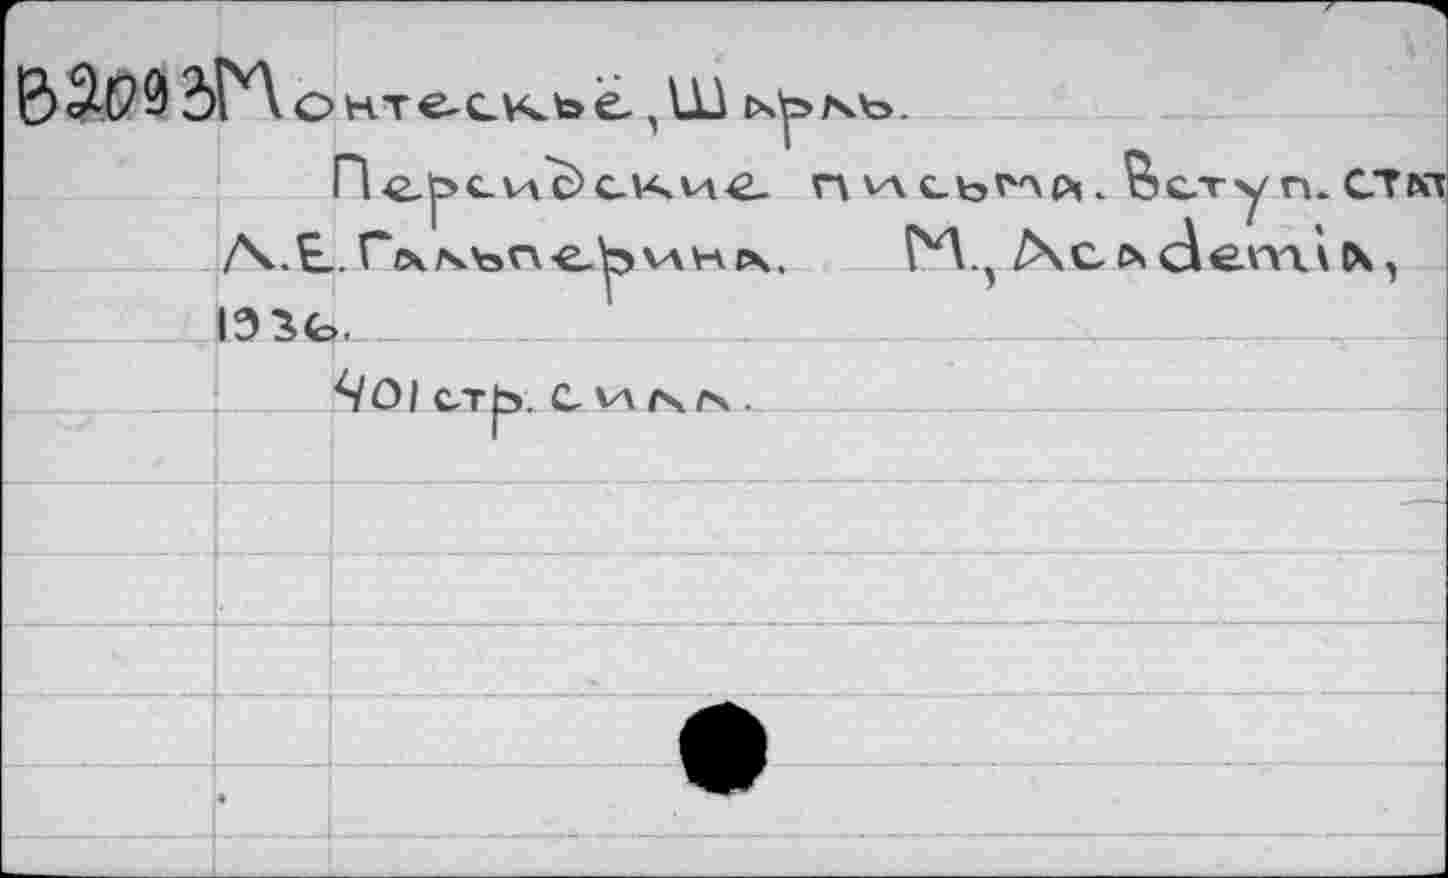 В2093 Монтескьё, Шарль.
Персидские письма. Вступ. стат
А.Е. Гальперина. М., Academia,
1936.
401 стр. с илл.